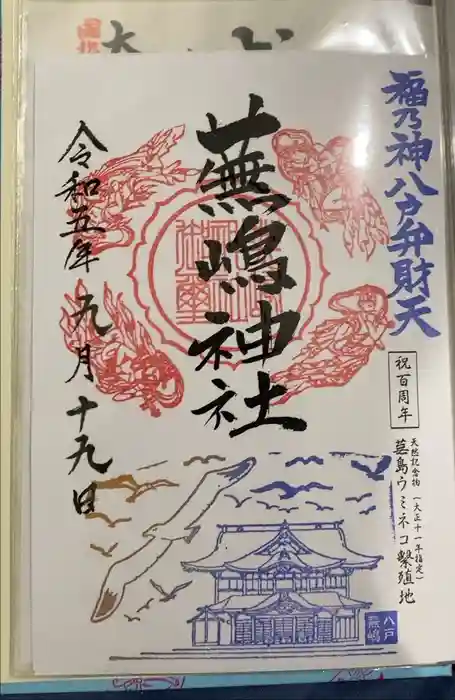 福乃神八戸弁財天
祝百周年
天然記念物(大正十一年指定)
蕪島ウミネコ繁殖地
蕪嶋神社
令和五年 九月十九日
八戸
蕪嶋